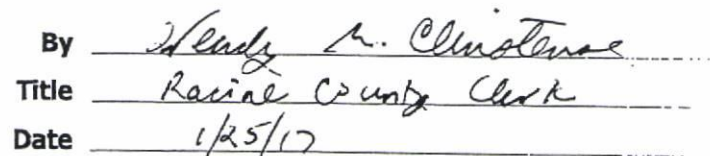 By Wendy M. Christensen
Title Racine County Clerk
Date 1/25/17